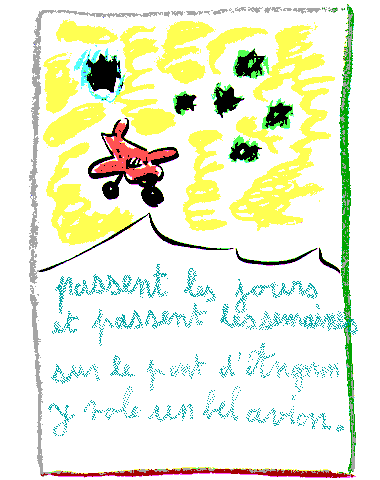 passent les jours
et passent les semaines
sur le pont d'Avignon
y vole un bel avion.